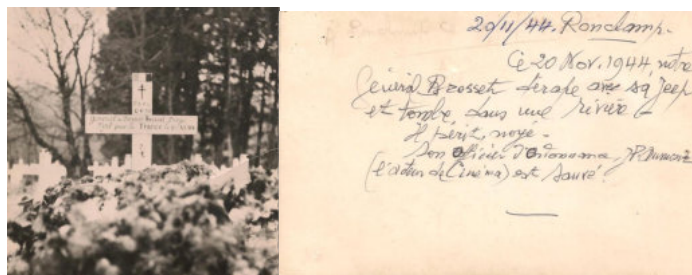 Général Brosset Diego
20/11/44. Ronchamp.
Ce 20 Nov. 1944, notre
Général Brosset dérape avec sa Jeep
et tombe dans une rivière
Il périt, noyé.
Son officier d'Ordonnance, JP Aumont
(l'acteur de Cinéma) est sauvé.